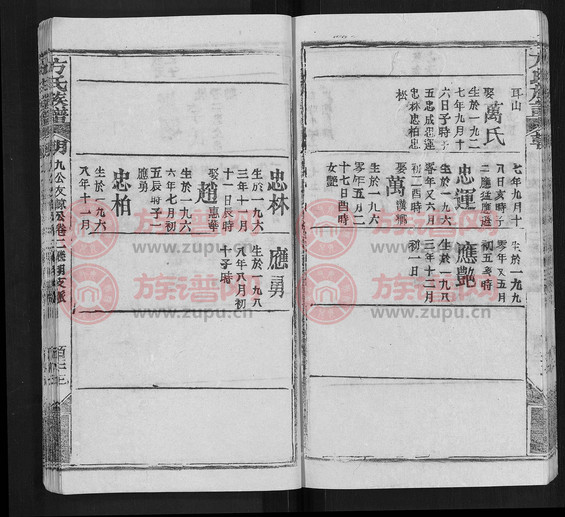 耳山
娶萬氏
生於一九二
七年九月十
六日子時子
五忠成想運
忠林忠柏忠
松
七年九月十
八日亥時子
二應猛應進
忠運
生於一九六
零年又六月
初二酉時
娶萬
生於一九六
零年五月二
十七日酉時
女艷
生於一九九
零年又五月
初五亥時
應艷
生於一九八
三年十二月
初一日
方氏族譜
忠林
生於一九六
三年十一月
十一日辰時
娶趙惠華
生於一九六
六年七月初
五辰時子
應勇
忠柏
生於一九六
八年十一月
應勇
生於一九八
八年八月初
十子時
九公友諒公卷二
族谱网
www.zupu.cn
族谱网
www.zupu.cn
族谱网
www.zupu.cn
族谱网
www.zupu.cn